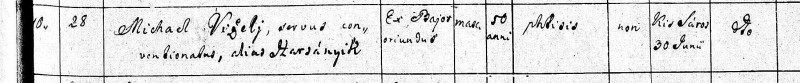 10. 28 Michael Vigelj, servus con„ Ex Bajor masc. 50 phtisis non Kis Sáros Do
ventionatus, alias Harsányik oriundus anni 30 Junii